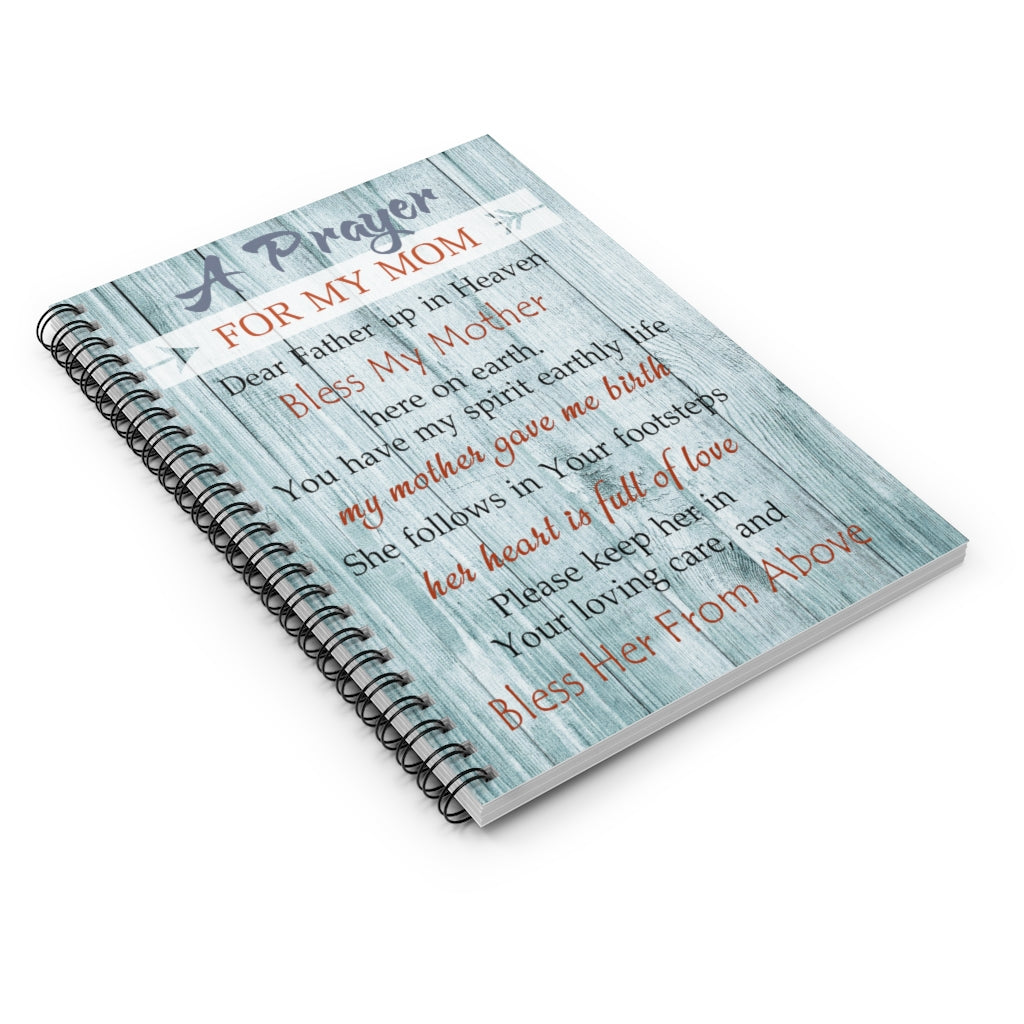 A Prayer
FOR MY MOM
Dear Father up in Heaven
Bless My Mother
here on earth.
You have my spirit earthly life
my mother gave me birth
She follows in Your footsteps
her heart is full of love
Please keep her in
Your loving care, and
Bless Her From Above